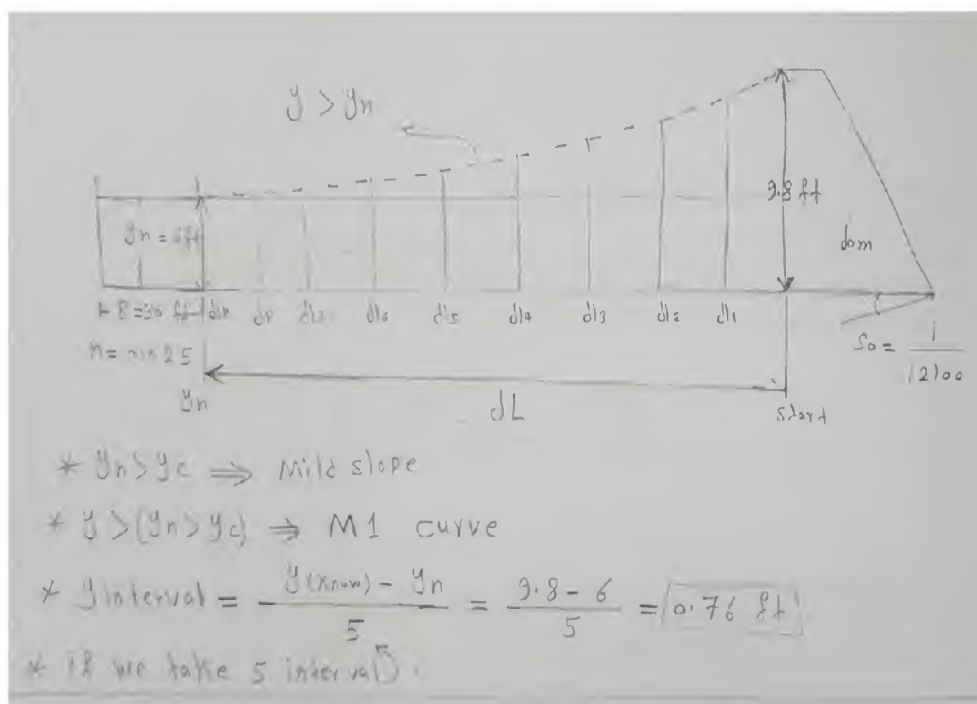 y > yn
9.8 ft
yn = 6ft
dom
B = 30 ft
dl5 dl4 dl3 dl2 dl1
So = 1 / 12100
n =
yn
dL
Start
* yn > yc ⇒ Mild slope
* y > (yn > yc) ⇒ M1 curve
* y interval = y(know) - yn / 5 = 9.8 - 6 / 5 = 0.76 ft
* if we take 5 interval